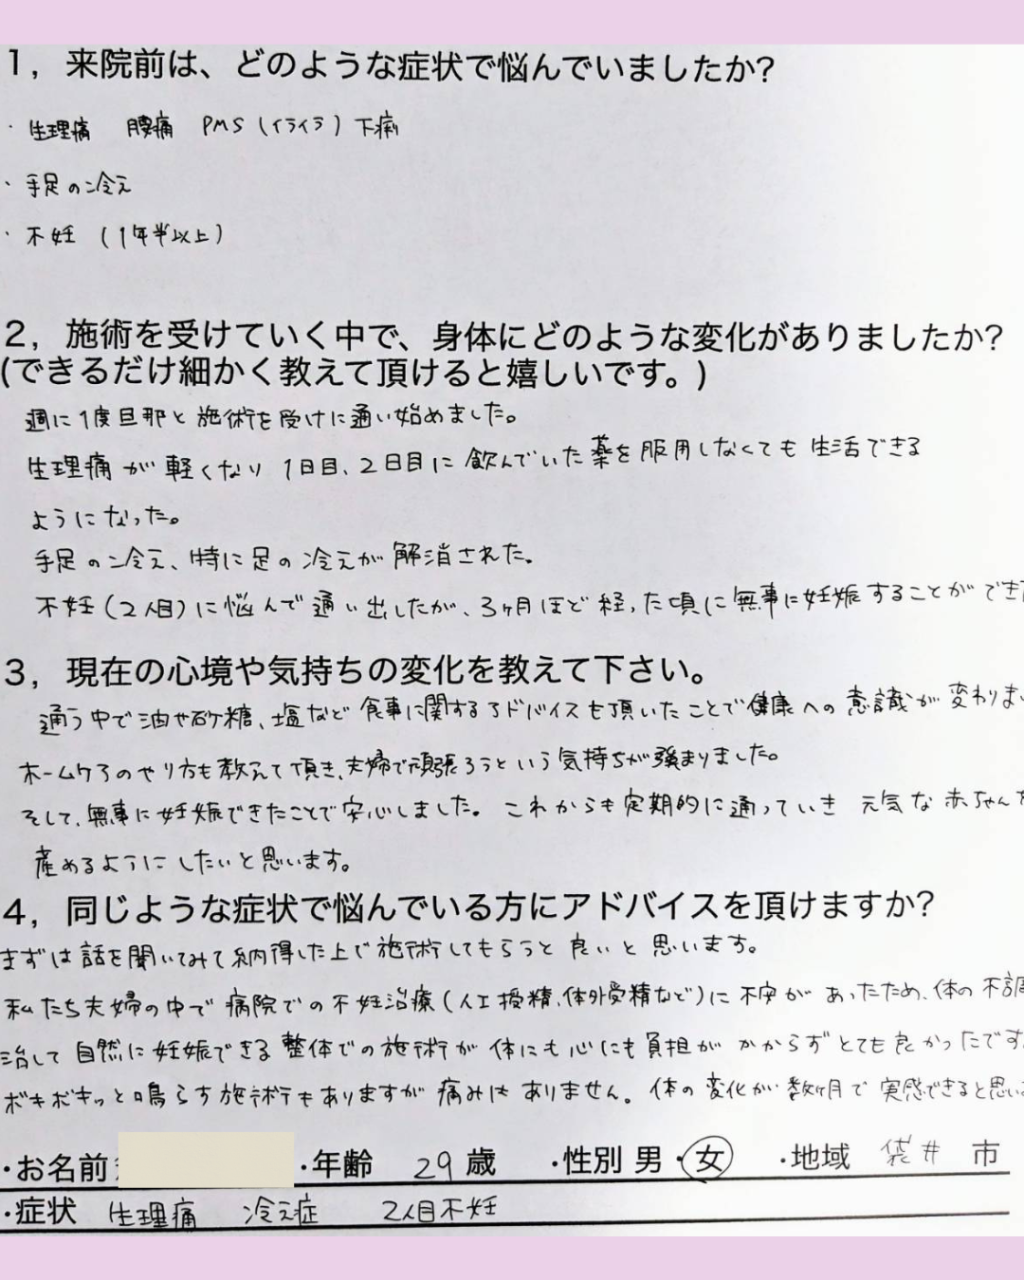 1，来院前は、どのような症状で悩んでいましたか?
・生理痛 腰痛 PMS（イライラ）下痢
・手足の冷え
・不妊（1年半以上）
2，施術を受けていく中で、身体にどのような変化がありましたか?
(できるだけ細かく教えて頂けると嬉しいです。)
週に1度旦那と施術を受けに通い始めました。
生理痛が軽くなり1日目、2日目に飲んでいた薬を服用しなくても生活できる
ようになった。
手足の冷え、特に足の冷えが解消された。
不妊（2人目）に悩んで通い出したが、3ヶ月ほど経った頃に無事に妊娠することができ
3，現在の心境や気持ちの変化を教えて下さい。
通う中で油や砂糖、塩など食事に関するアドバイスも頂いたことで健康への意識が変わりま
ホームケアのやり方も教えて頂き、夫婦で頑張ろうという気持ちが強まりました。
そして、無事に妊娠できたことで安心しました。これからも定期的に通っていき 元気な赤ちゃんを
産めるようにしたいと思います。
4，同じような症状で悩んでいる方にアドバイスを頂けますか?
まずは話を聞いてみて納得した上で施術してもらうと良いと思います。
私たち夫婦の中で病院での不妊治療（人工授精、体外受精など）に不安があったため、体の不調
治して自然に妊娠できる整体での施術が体にも心にも負担がかからずとても良かったです。
ボキボキッと鳴らす施術もありますが痛みはありません。体の変化が数ヶ月で実感できると思い
・お名前 ・年齢 29歳 ・性別 男・女 ・地域 袋井市
・症状 生理痛 冷え症 2人目不妊